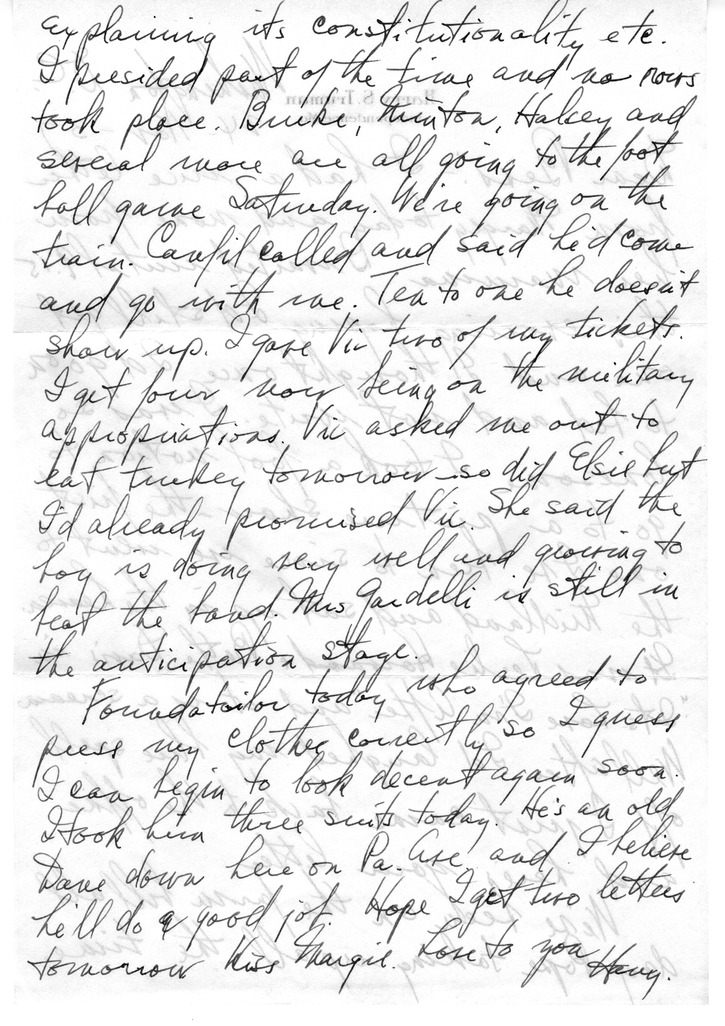 explaining its constitutionality etc.
I presided part of the time and no rows
took place. Burke, Minton, Halsey and
several more are all going to the foot
ball game Saturday. We're going on the
train. Canfil called and said he'd come
and go with me. Ten to one he doesn't
show up. I gave Vic two of my tickets.
I get four now being on the military
appropriations. Vic asked me out to
eat turkey tomorrow - so did Elsie but
I'd already promised Vic. She said the
boy is doing very well and growing to
beat the band. Mrs Gardelli is still in
the anticipation stage.
Found a tailor today who agreed to
press my clothes correctly so I guess
I can begin to look decent again soon.
I took him three suits today. He's an old
down here on Pa. Ave and I believe
he'll do a good job. Hope I get two letters
tomorrow Kiss Margie. Love to you Harry.
Harry S. Truman